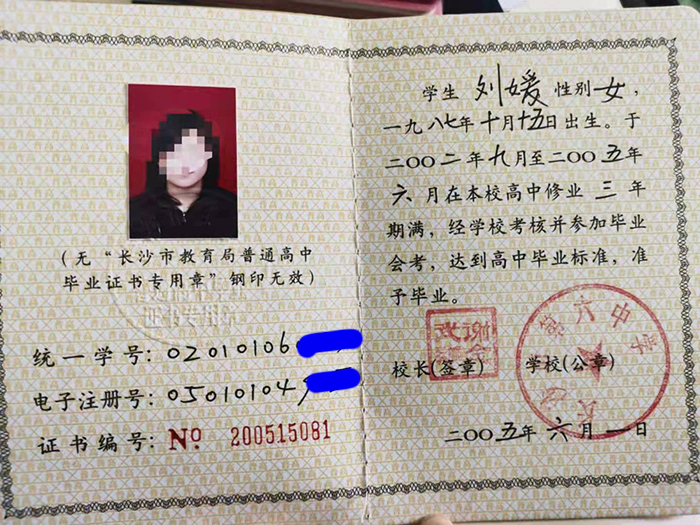 (无“长沙市教育局普通高中
毕业证书专用章”钢印无效)
证书专用章
统一学号: 02010106
电子注册号: 05010104
证书编号: No 200515081
学生 刘媛 性别 女,
一九八七年十月十五日出生。于
二〇〇二年九月至二〇〇五年
六月在本校高中修业 三 年
期满, 经学校考核并参加毕业
会考, 达到高中毕业标准, 准
予毕业。
校长(签章) 学校(公章)
六中学
二〇〇五年 六月 一日